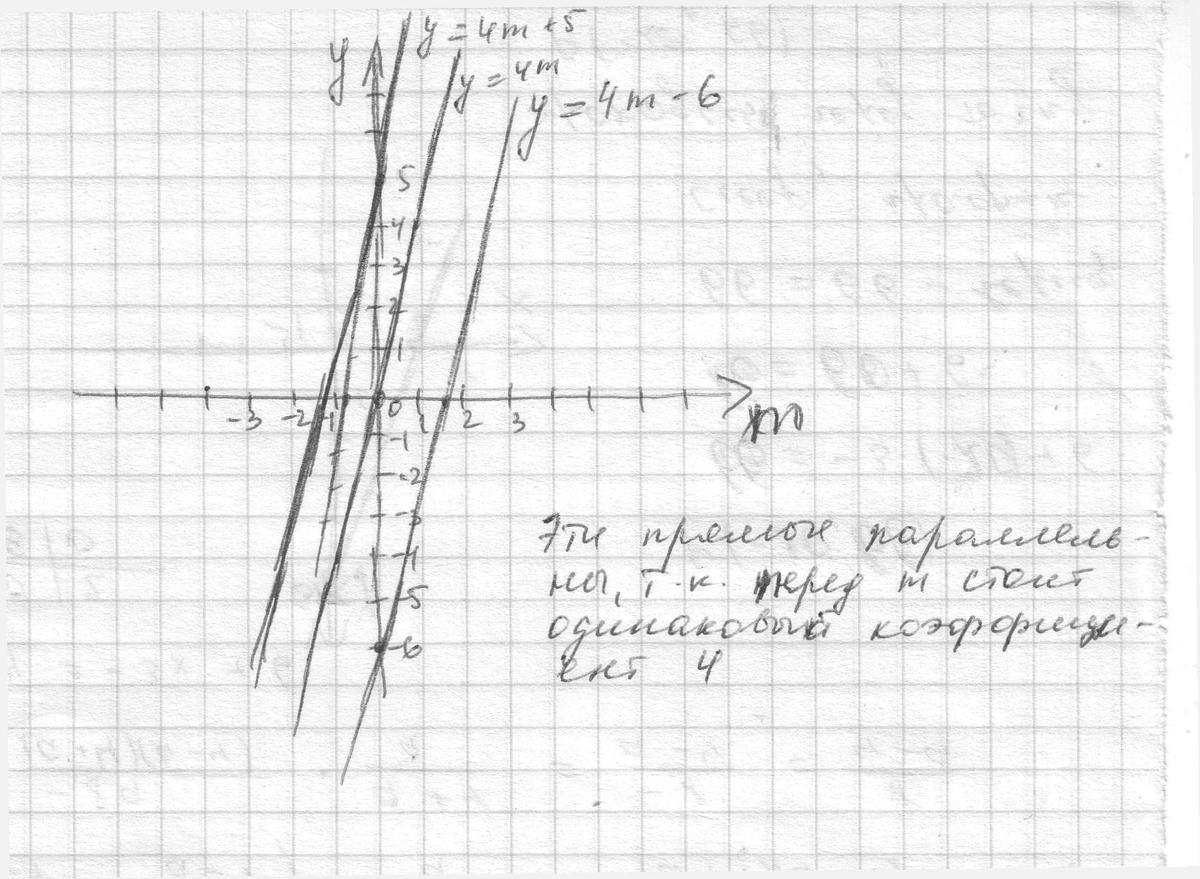 y = 4m + 5
y = 4m
y = 4m - 6
y
5
4
3
2
1
-3 -2 -1 0 1 2 3
m
-1
-2
-3
-4
-5
-6
Эти прямые параллель-
ны, т.к. перед m стоит
одинаковый коэффици-
ент 4